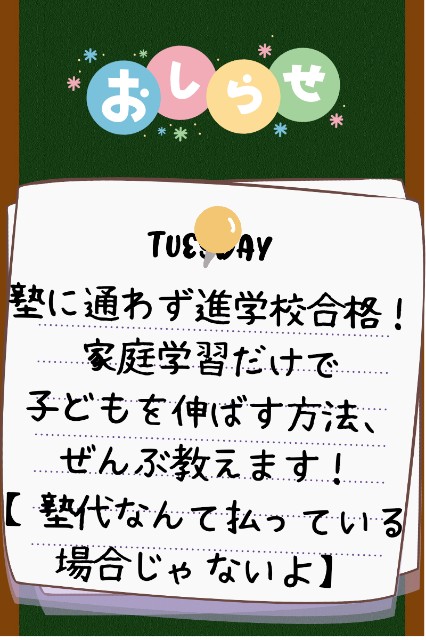 おしらせ
TUESDAY
塾に通わず進学校合格！
家庭学習だけで
子どもを伸ばす方法、
ぜんぶ教えます！
【 塾代なんて払っている
場合じゃないよ】